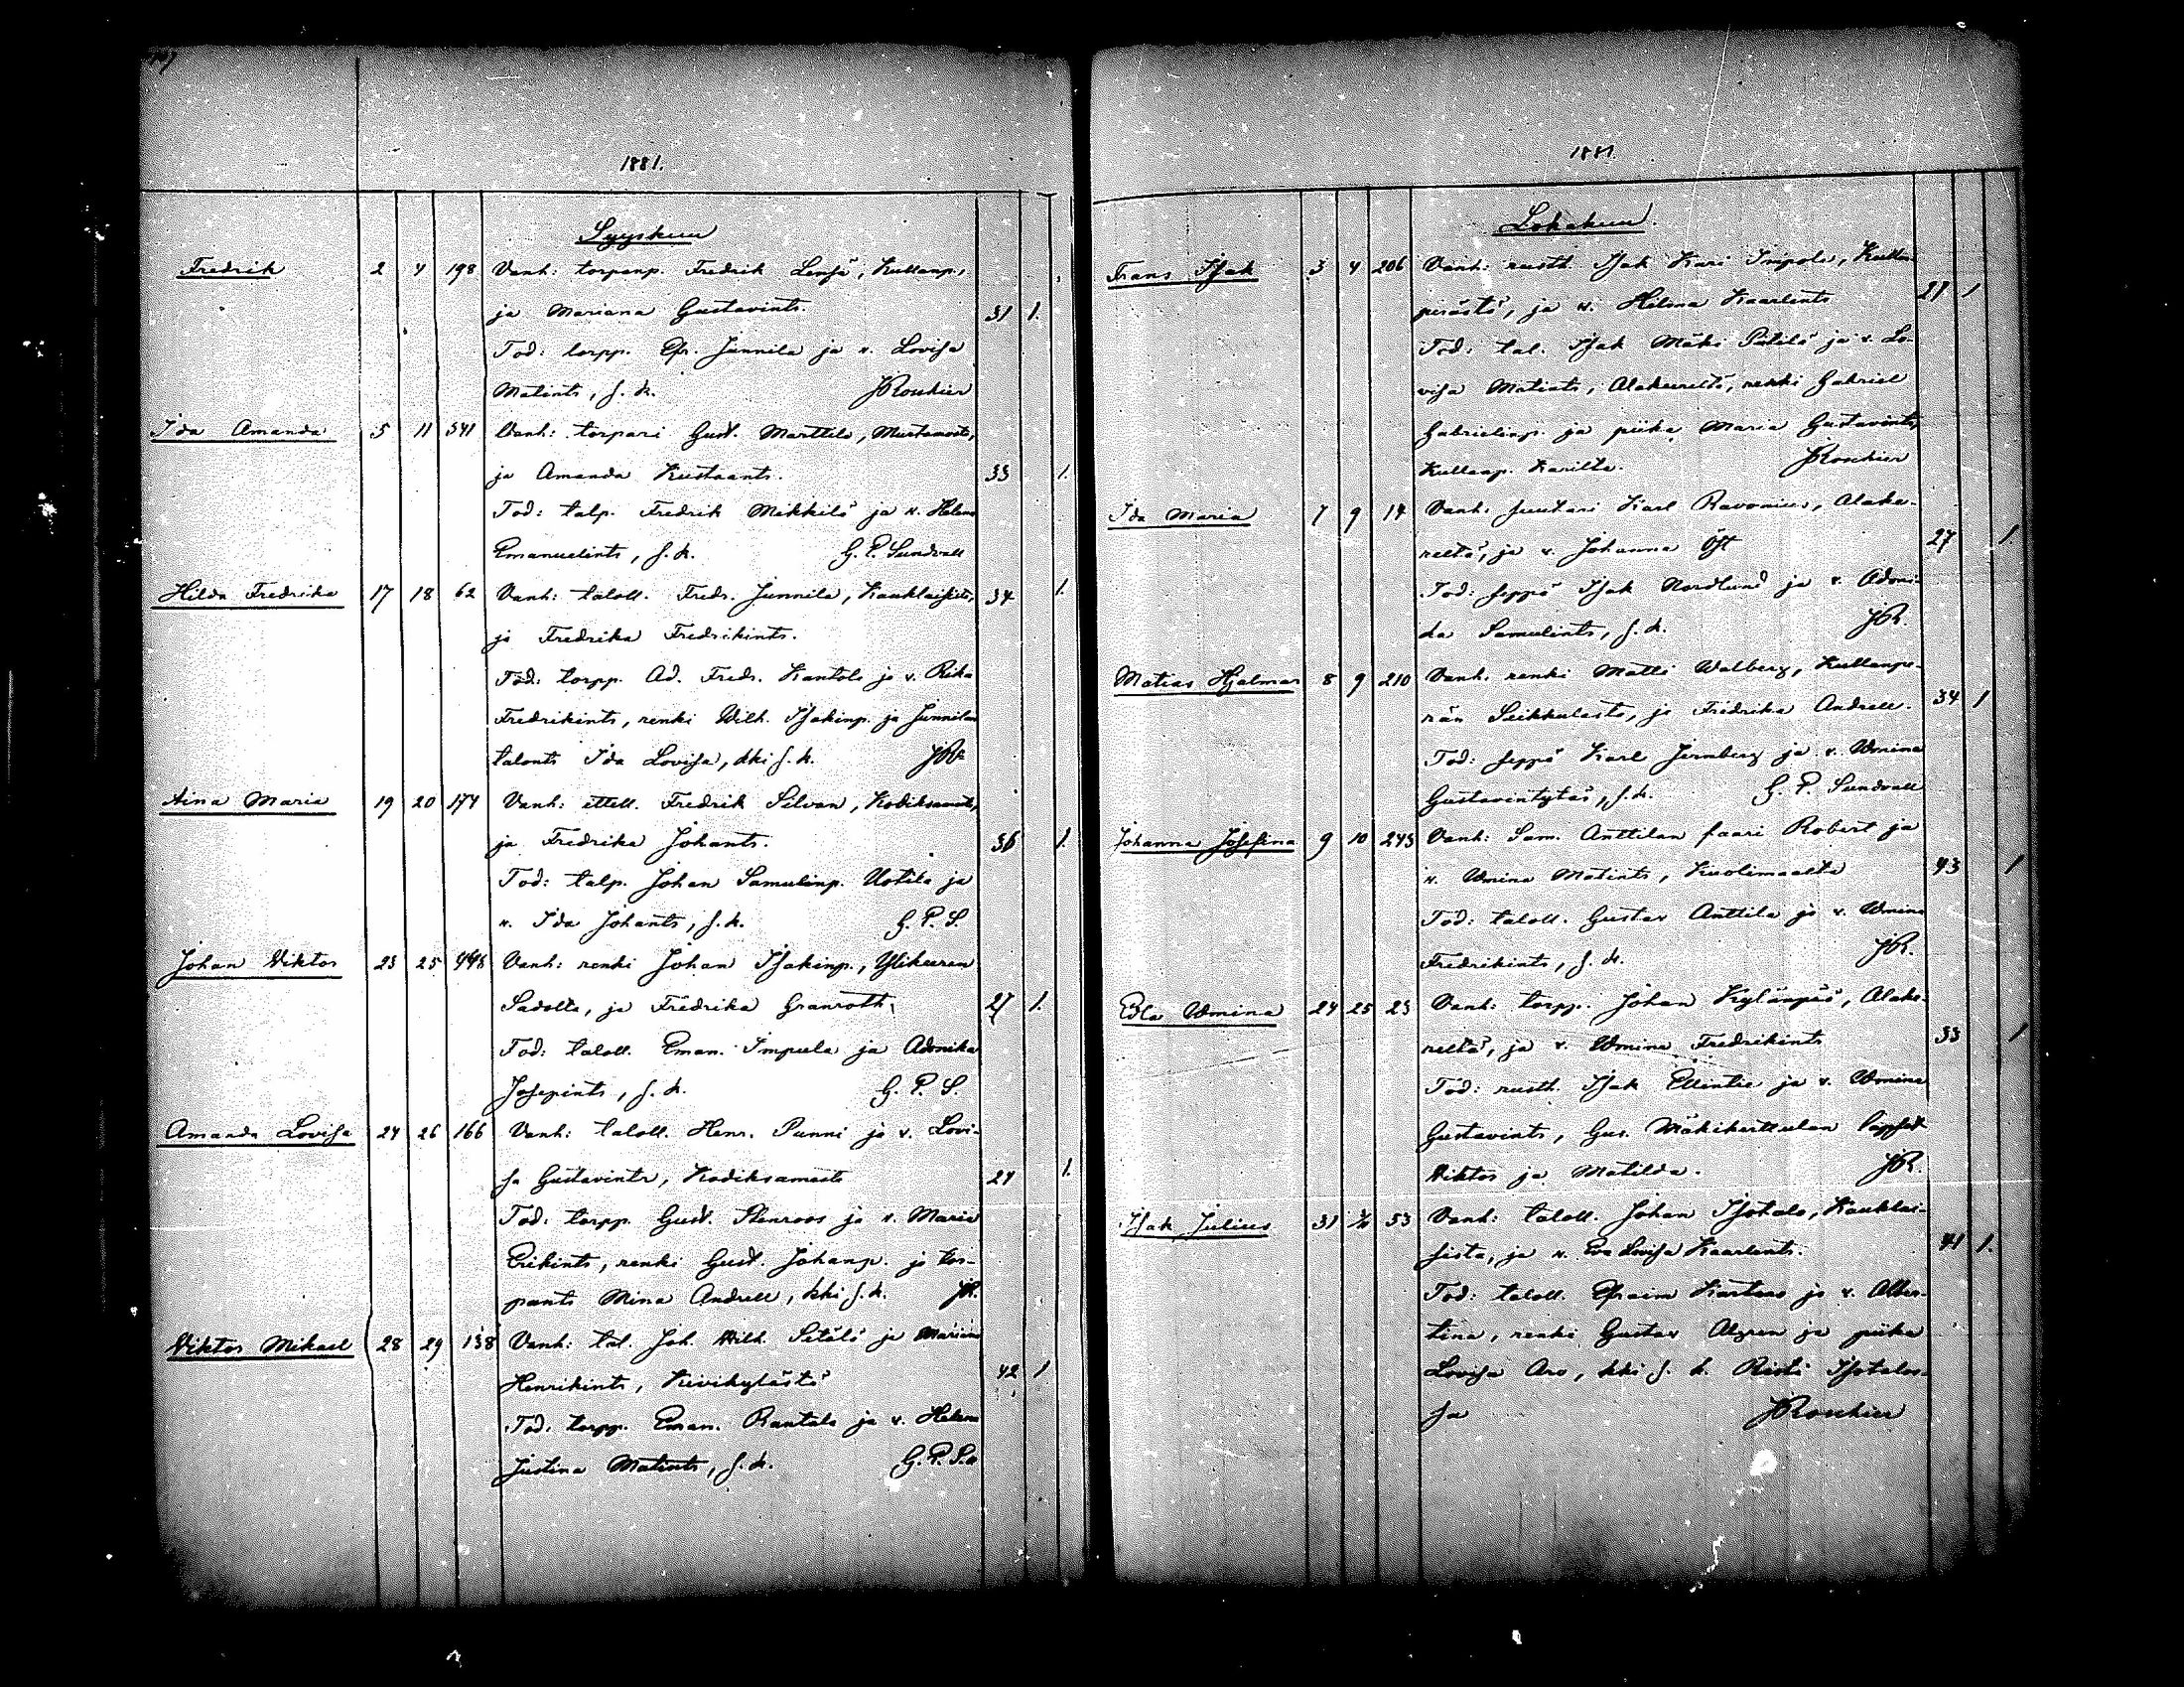 1881.
Syyskuu
Fredrik 2 4 198 Vanh: torpanp. Fredrik Lensä, Kullanp.,
ja Mariana Gustavints. 31 1.
Tod: torpp. Efr. Junnila ja v. Lovisa
Matints, s. k. JRoukier
Ida Amanda 5 11 341 Vanh: torpari Gust. Marttila,
ja Amanda Kustaants. 33 1.
Tod: talp. Fredrik Mikkilä ja v. Helena
Emanuelints, s. k. G. P. Sundvall
Hilda Fredrika 17 18 62 Vanh: taloll. Fredr. Junnila, 34 1.
ja Fredrika Fredrikints.
Tod: torpp. Ad. Fredr. Kantola ja v. Rika
Fredrikints, renki Wilh. Isakinp. ja Junnilan
talonts Ida Lovisa, kki s. k. JRr
Aina Maria 19 20 174 Vanh: ittell. Fredrik Silvan,
ja Fredrika Johants. 36 1.
Tod: talp. Johan Samulinp. Uotila ja
v. Ida Johants, s. k. G. P. S.
Johan Viktor 23 25 448 Vanh: renki Johan Isakinp., Ylikeeren
Sadolta, ja Fredrika Granroth, 27 1.
Tod: taloll. Eman. Impula ja Adonika
Josepints, s. k. G. P. S.
Amanda Lovisa 24 26 166 Vanh: taloll. Henr. Punni ja v. Lovi-
sa Gustavints, Kodiksamosta 24 1.
Tod: torpp. Gust. Stenroos ja v. Maria
Erikints, renki Gust. Johanp. ja tor-
pants Mina Andrell, kki s. k. JR.
Viktor Mikael 28 29 138 Vanh: tal. Joh. Wilh. Setälä ja Mariana
Henrikints, Kivikylästä 42 1
Tod: torpp. Eman. Rantala ja v. Helena
Justina Matints, s. k. G. P. S.
1881.
Lokakuu.
Frans Isak 3 4 206 Vanh: rusth. Isak Kari Impola, Kullan-
perästä, ja v. Helena Kaarlints 21 1
Tod: tal. Isak Mäki Pätilä ja v. Lo-
visa Matints, Alakeereltä, renki Gabriel
Gabrielinp. ja piika Maria Gustavints,
Kullanp. Karilta. JRoukier
Ida Maria 7 9 14 Vanh: suutari Karl Ravonius, Alake-
reeltä, ja v. Johanna Öst 27 1.
Tod: seppä Isak Nordlund ja v. Adoni-
ka Samulints, s. k. JR.
Matias Hjalmar 8 9 210 Vanh: renki Matti Walberg, Kullanpe-
rän Seikkulasta, ja Fredrika Andrell. 34 1
Tod: seppä Karl Jernberg ja v. Wmina
Gustavintytär, s. k. G. P. Sundvall
Johanna Josefina 9 10 243 Vanh: Sam. Anttilan faari Robert ja
v. Wmina Matints, Kuolimaalta 43 1
Tod: taloll. Gustav Anttila ja v. Wmina
Fredrikints, s. k. JR.
Edla Wmina 24 25 23 Vanh: torpp. Johan Kylänpää, Alake-
reeltä, ja v. Wmina Fredrikints 33 1
Tod: rusth. Isak Ellintie ja v. Wmina
Gustavints, Gus. Mäkikerttulan lapset
Viktor ja Matilda. JR.
Isak Julius 31 53 Vanh: taloll. Johan Isotalo, Kauklai-
sista, ja v. Eva Lovisa Kaarlints. 41 1.
Tod: taloll. Efraim Karteus ja v. Alber-
tina, renki Gustav Algren ja piika
Lovisa Aro, kki s. k. Risti Isotalos-
sa JRoukier